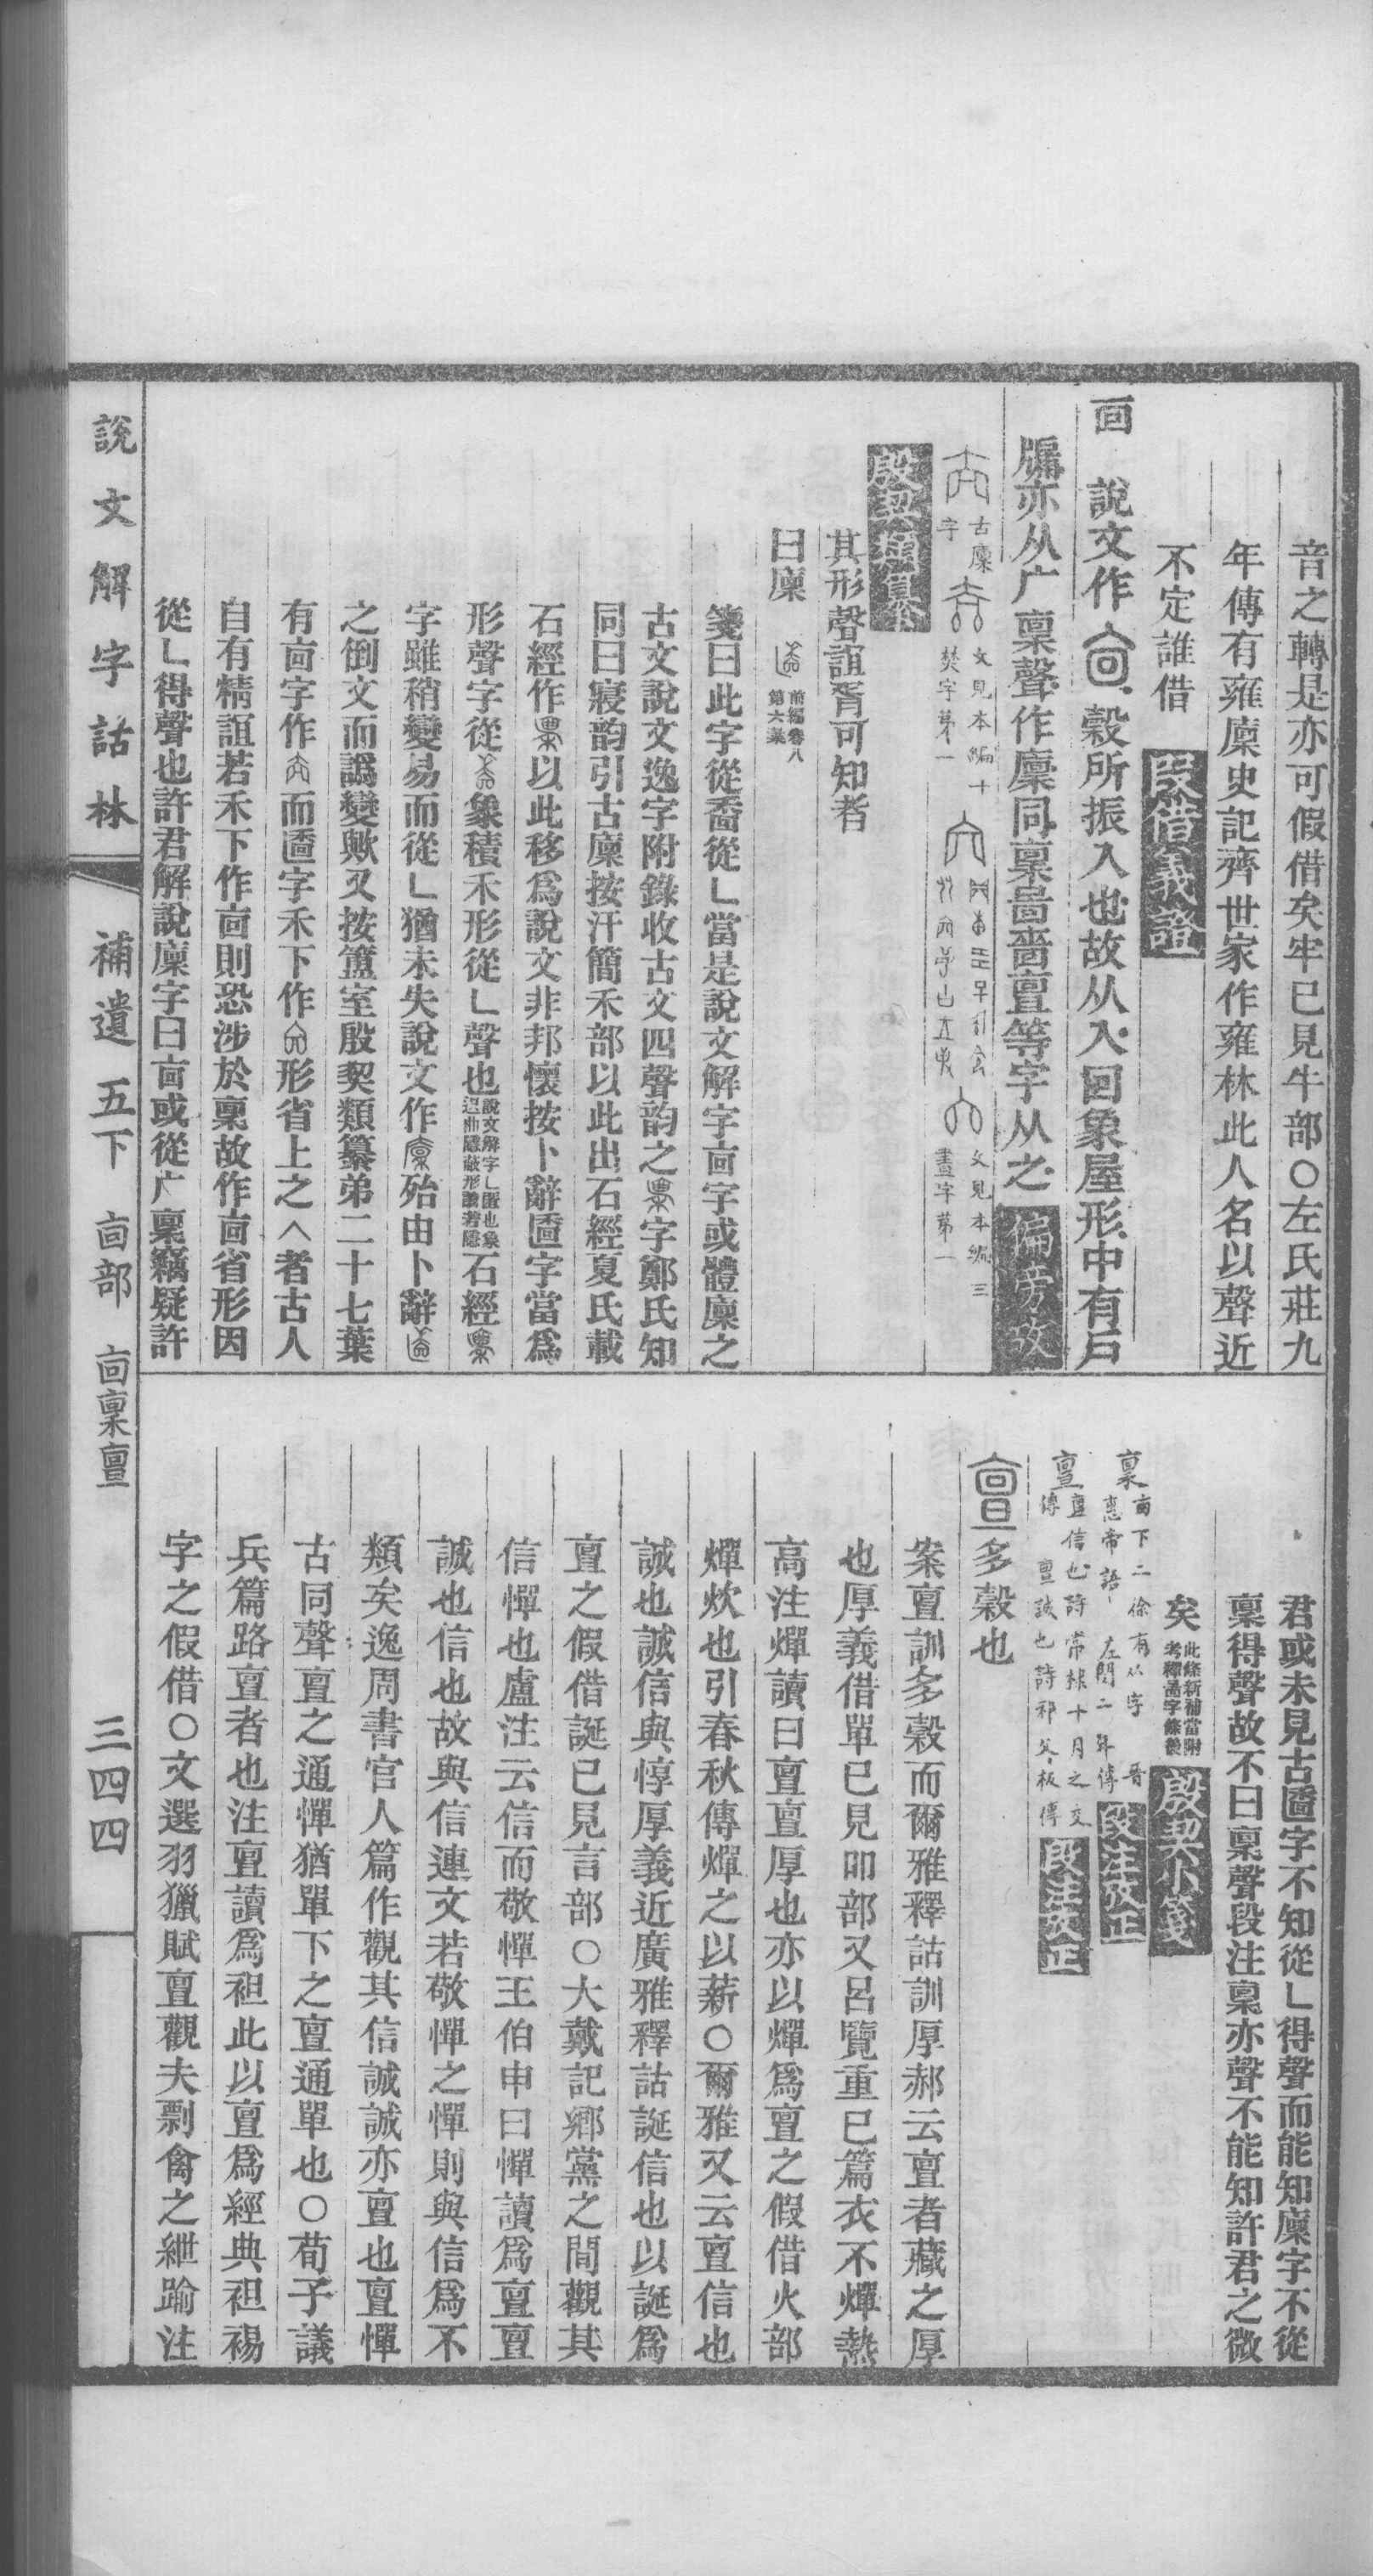 音之轉是亦可假借矣牢已見牛部○左氏莊九
年傳有雍廩史記齊世家作雍林此人名以聲近
不定誰借 段借義證
㐭 說文作㐭穀所振入也故从入回象屋形中有戶
牖亦从广稟聲作廩同稟啚嗇亶等字从之 偏旁攷
古廩字 文見本編十 焚字第一 文見本編三 晝字第一
殷契類纂
其形聲誼胥可知者
曰廩 前編卷八第六葉
箋曰此字從㐭從乚當是說文解字㐭字或體廩之
古文說文逸字附錄收古文四聲韵之 字鄭氏知
同曰寢韵引古廩按汗簡禾部以此出石經夏氏載
石經作 以此移爲說文非邦懷按卜辭 字當爲
形聲字從 象積禾形從乚聲也 說文解字乚匿也象迟曲隱蔽形讀若隱 石經
字雖稍變易而從乚猶未失說文作 殆由卜辭
之倒文而譌變歟又按簠室殷契類纂弟二十七葉
有㐭字作 而 字禾下作 形省上之 者古人
自有精誼若禾下作㐭則恐涉於稟故作㐭省形因
從乚得聲也許君解說廩字曰㐭或從广稟竊疑許
君或未見古 字不知從乚得聲而能知廩字不從
稟得聲故不曰稟聲段注稟亦聲不能知許君之微
矣 此條新補當附考釋啚字條後 殷契小箋
稟 㐭下二徐有从字 晉惠帝語 左閔二年傳 段注攷正
亶 亶信也詩常棣十月之交傳 亶誠也詩祁父板傳 段注攷正
亶 多穀也
案亶訓多穀而爾雅釋詁訓厚郝云亶者藏之厚
也厚義借單已見吅部又呂覽重己篇衣不燀熱
高注燀讀曰亶亶厚也亦以燀爲亶之假借火部
燀炊也引春秋傳燀之以薪○爾雅又云亶信也
誠也誠信與惇厚義近廣雅釋詁誕信也以誕爲
亶之假借誕已見言部○大戴記鄉黨之間觀其
信憚也盧注云信而敬憚王伯申曰憚讀爲亶亶
誠也信也故與信連文若敬憚之憚則與信爲不
類矣逸周書官人篇作觀其信誠誠亦亶也亶憚
古同聲亶之通憚猶單下之亶通單也○荀子議
兵篇路亶者也注亶讀爲袒此以亶爲經典袒裼
字之假借○文選羽獵賦亶觀夫剽禽之紲踰注
說文解字詁林 補遺 五下 㐭部 㐭稟亶 三四四